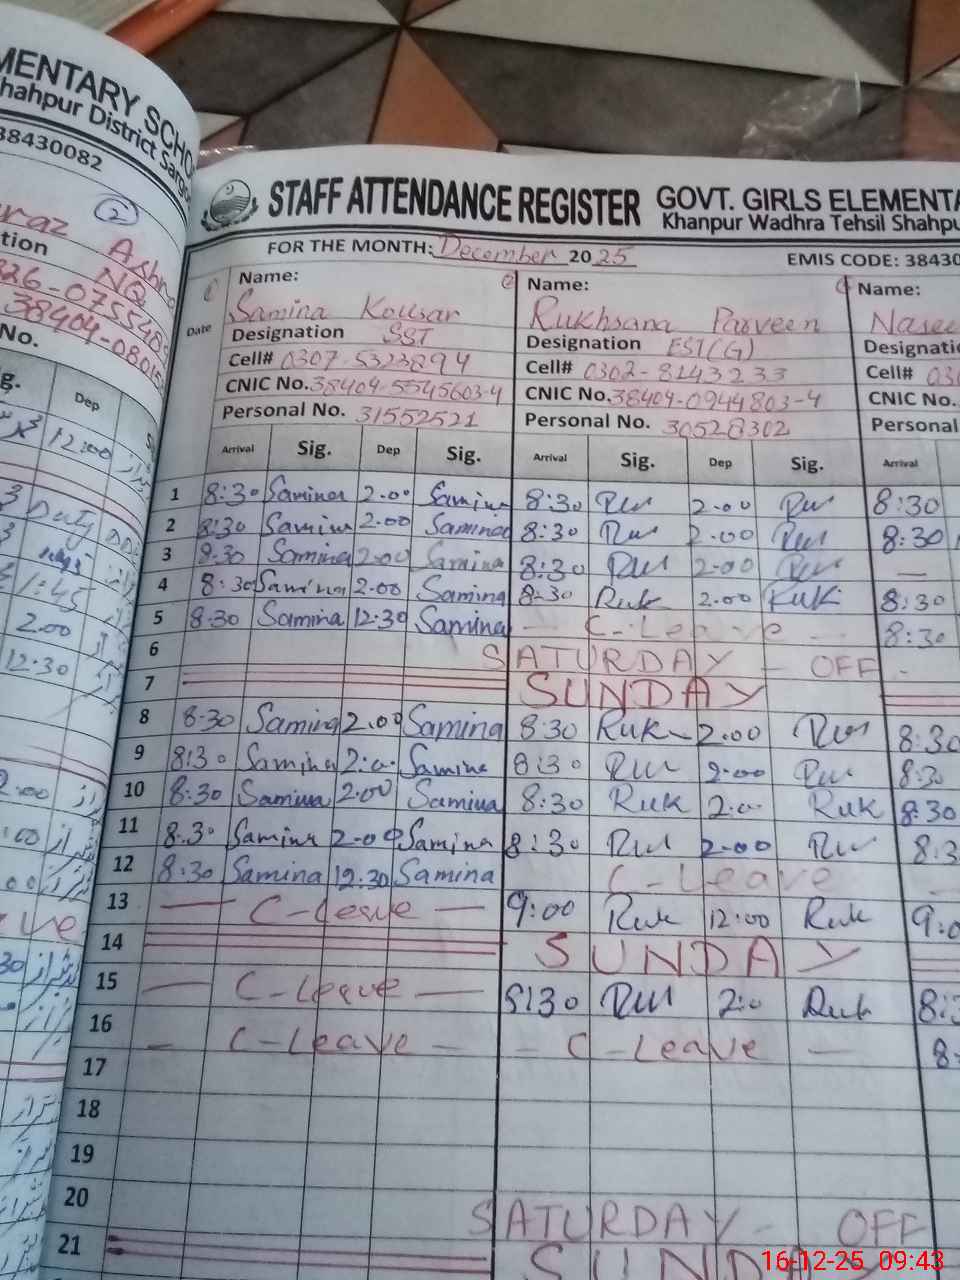 MENTARY SCHO
hahpur District Sargo
38430082
2
raz Ashra
tion NQ
326-0755489
38404-080
No.
g. Dep
12:00
Duty
1:45
2.00
12:30
STAFF ATTENDANCE REGISTER GOVT. GIRLS ELEMENTA
Khanpur Wadhra Tehsil Shahpu
FOR THE MONTH: December 2025 EMIS CODE: 38430
Date Name: Name: Name:
Samina Kousar Rukhsana Parveen Nasee
Designation SST Designation EST(G) Designati
Cell# 0307-5323894 Cell# 0302-8143233 Cell# 030
CNIC No. 38404-5545603-4 CNIC No. 38404-0944803-4 CNIC No.
Personal No. 31552521 Personal No. 30528302 Personal
Arrival Sig. Dep Sig. Arrival Sig. Dep Sig. Arrival
1 8:30 Samina 2.00 Samina 8:30 Ruk 2.00 Ruk 8:30
2 8:30 Samina 2.00 Samina 8:30 Ruk 2.00 Ruk 8:30
3 8.30 Samina 2.00 Samina 8:30 Ruk 2.00 Ruk —
4 8:30 Samina 2.00 Samina 8:30 Ruk 2.00 Ruk 8:30
5 8:30 Samina 12:30 Samina — C-Leave — 8:30
6 SATURDAY - OFF -
7 SUNDAY
8 8:30 Samina 2.00 Samina 8:30 Ruk 2.00 Ruk 8:30
9 8:30 Samina 2:00 Samina 8:30 Ruk 2:00 Ruk 8:30
10 8:30 Samina 2.00 Samina 8:30 Ruk 2:00 Ruk 8:30
11 8:30 Samina 2.00 Samina 8:30 Ruk 2.00 Ruk 8:3
12 8:30 Samina 12.30 Samina C-Leave
13 — C-Leave — 9:00 Ruk 12:00 Ruk 9:0
14 SUNDAY
15 — C-Leave — 8:30 Ruk 2:0 Ruk 8:3
16 — C-Leave — — C-Leave — 8:
17
18
19
20 SATURDAY - OFF
21 SUNDAY
16-12-25 09:43